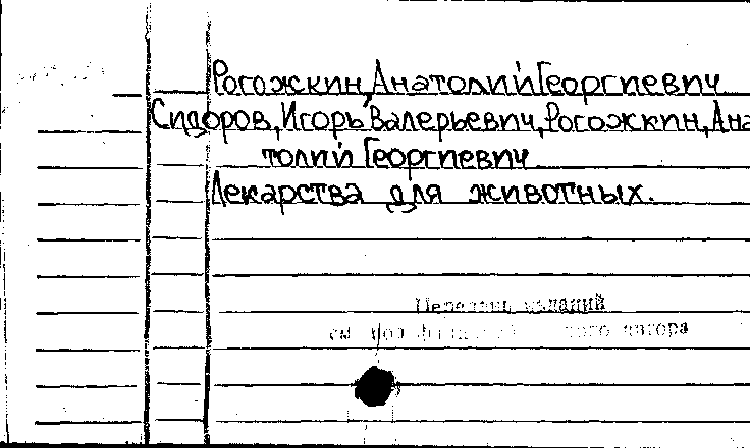 Рогожкин, Анатолий Георгиевич
Сидоров, Игорь Валерьевич, Рогожкин, Ана
толий Георгиевич
Лекарства для животных.
Перечень изданий
см. под фамилией авгора